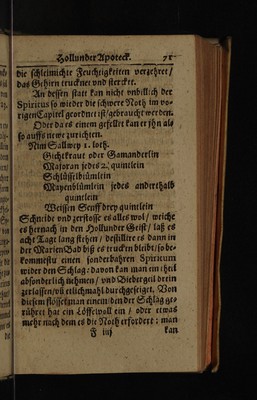 Hollunder Apoteck. 71
die schleimichte Feuchtigkeiten verzehret /
das Gehirn trucknet und stercket.
An dessen statt kan nicht unbillich der
Spiritus so wieder die schwere Noth im vo-
rigen Capitel geordnet ist / gebraucht werden.
Oder da es einem gefellt kan er ihn also
so auffs newe zurichten.
Nim Salwey 1. loth.
Gichtkraut oder Gamanderlin
Majoran jedes 2. quintlein
Schlüsselblümlein
Mayenblümlein jedes anderthalb
quintlein
Weissen Senff drey quintlein
Schneide und zerstosse es alles wol / weiche
es hernach in den Hollunder Geist / laß es
acht Tage lang stehen / destillire es dann in
der Marien Bad biß es trucken bleibt: so be-
kommestu einen sonderbahren Spiritum
wider den Schlag: davon kan man ein theil
absonderlich nehmen / und Biebergeil drein
zerlassen / uñ etlichmahl durchgeseiget. Von
diesem flösset man einem den der Schlag ge-
rühret hat ein Löffel voll ein / oder etwas
mehr nach dem es die Noth erfordert: man
F iiij kan